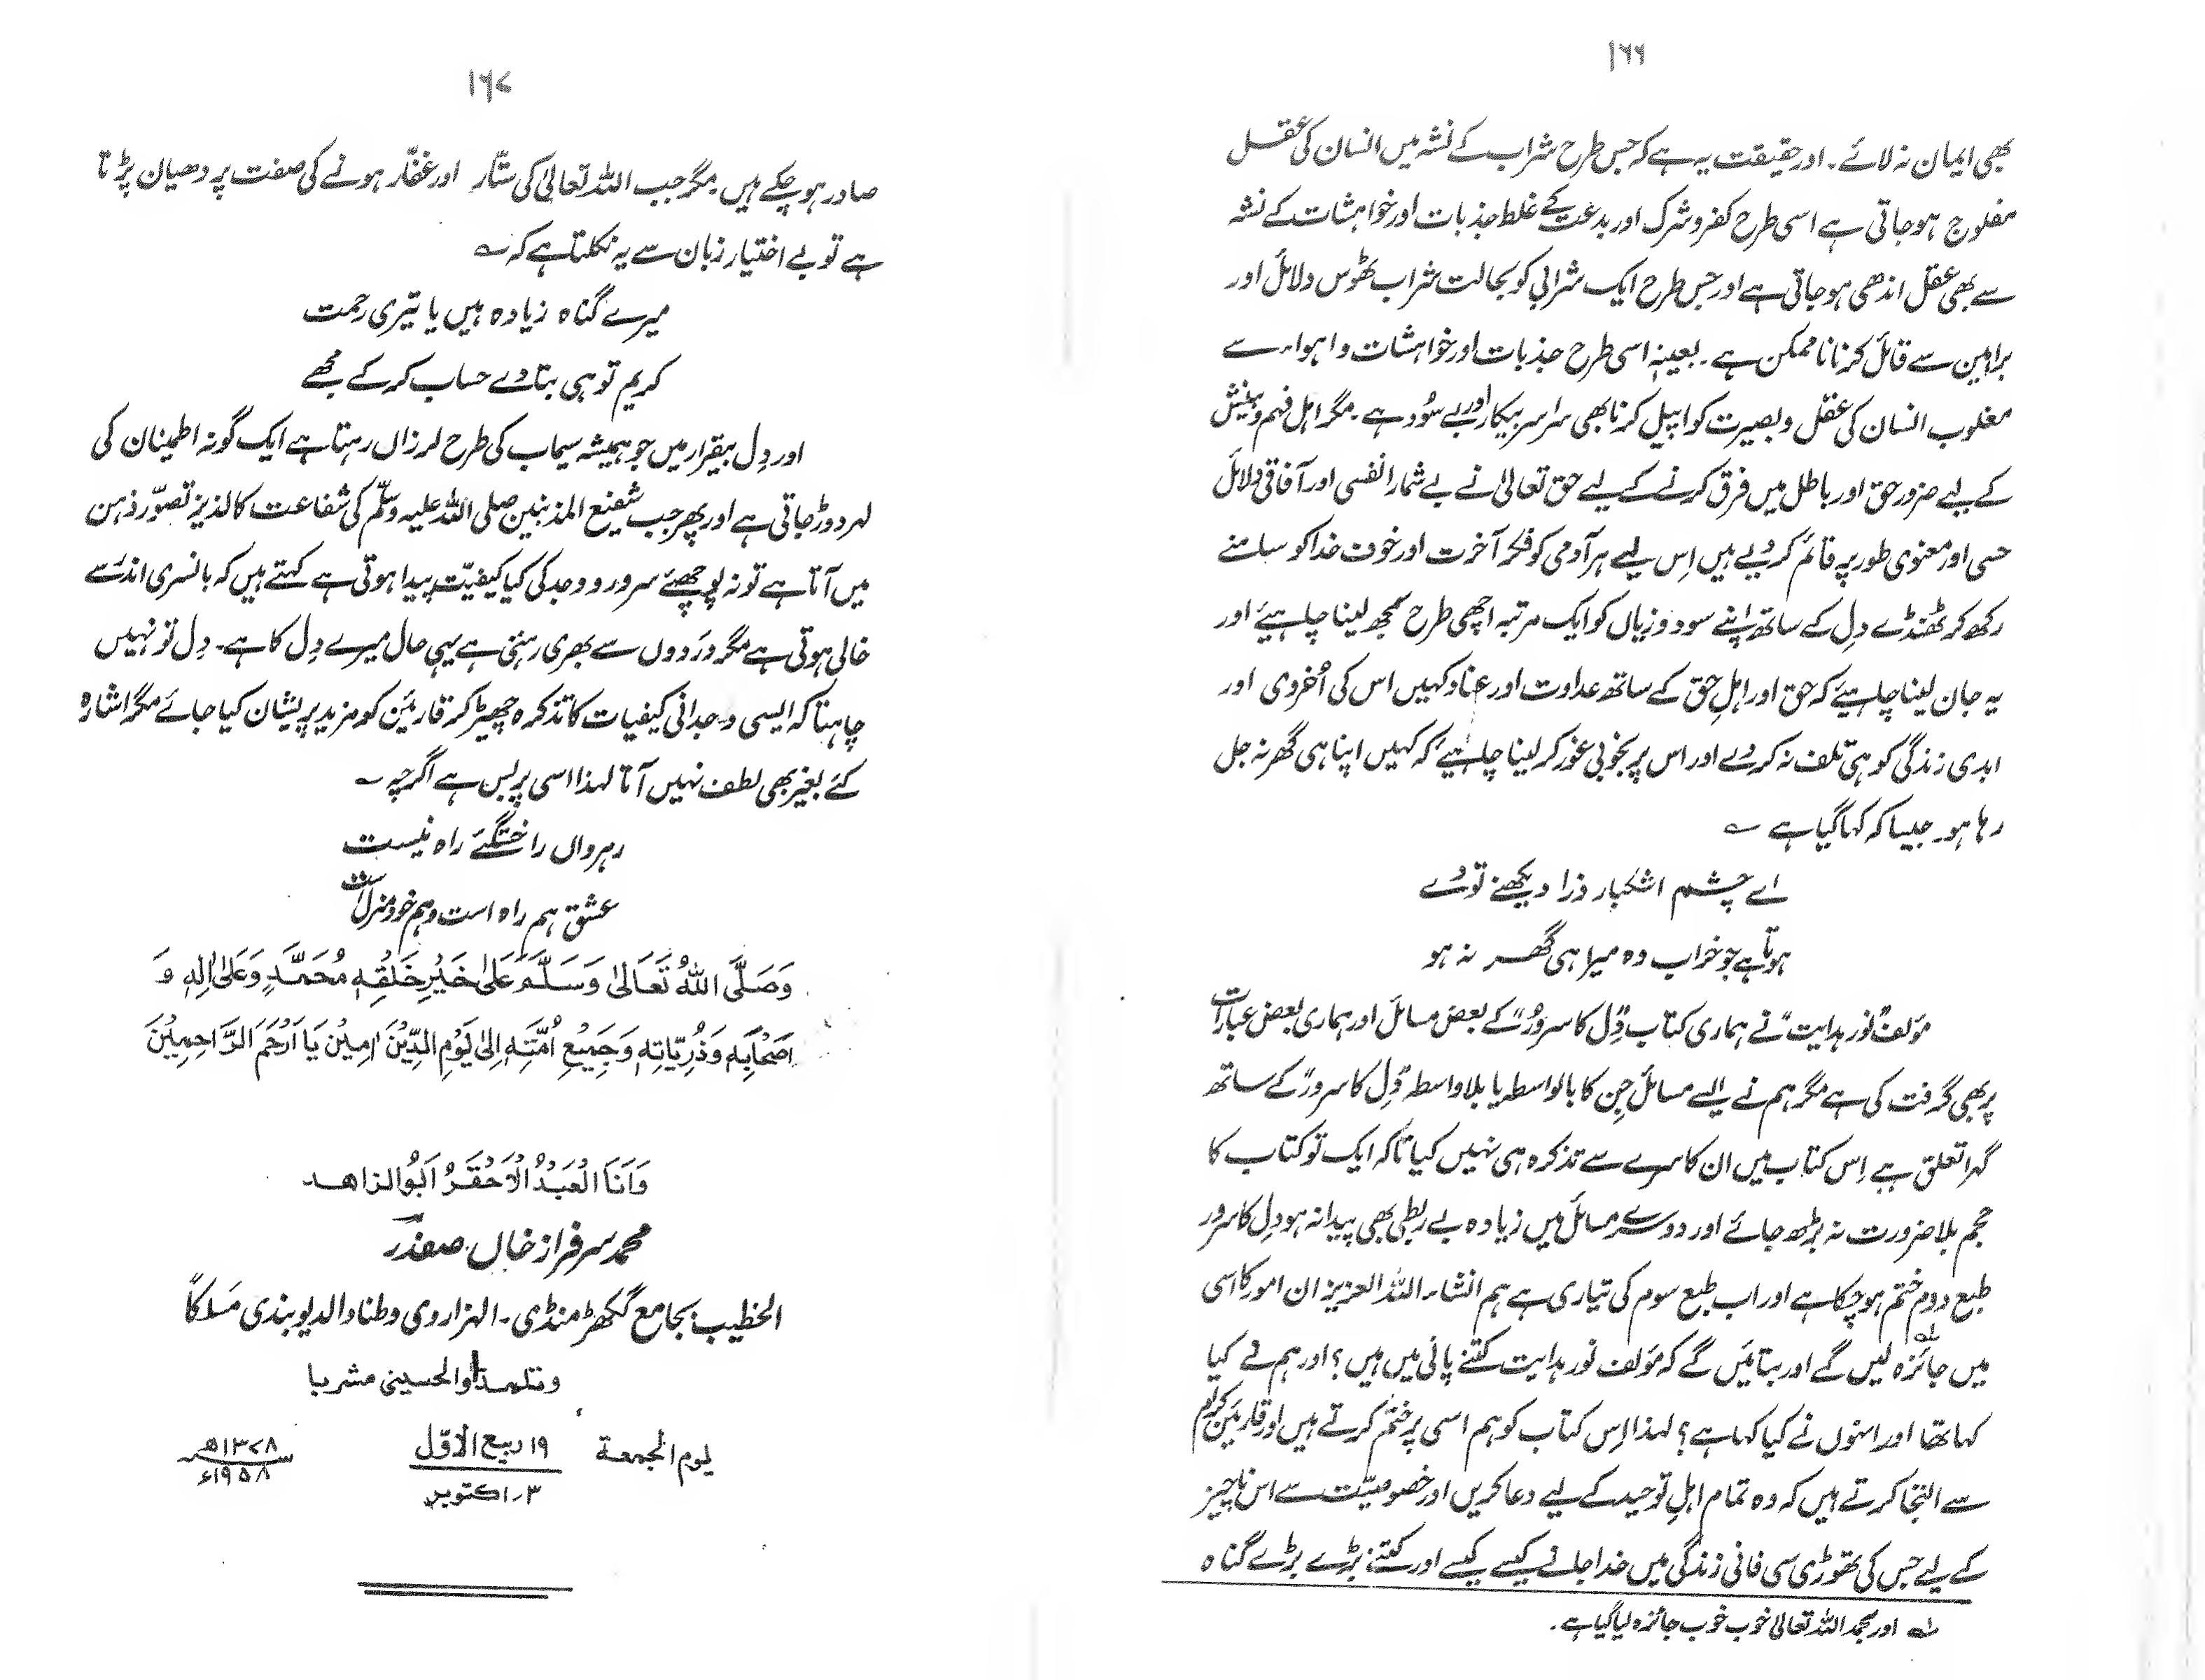 ۱۶۶
بھی ایمان نہ لائے۔ اور حقیقت یہ ہے کہ جس طرح شراب کے نشہ میں انسان کی عقل
مفلوج ہو جاتی ہے اسی طرح کفر و شرک اور بدعت کے غلط جذبات اور خواہشات کے نشہ
سے بھی عقل اندھی ہو جاتی ہے اور جس طرح ایک شرابی کو بحالت شراب ٹھوس دلائل اور
براہین سے قائل کرنا ناممکن ہے۔ بعینہٖ اسی طرح جذبات اور خواہشات و اہواء سے
مغلوب انسان کی عقل و بصیرت کو اپیل کرنا بھی سراسر بیکار اور بے سُود ہے۔ مگر اہل فہم و بینش
کے لیے ضرور حق اور باطل میں فرق کرنے کے لیے حق تعالیٰ نے بے شمار انفسی اور آفاقی دلائل
حسی اور معنوی طور پر قائم کر دیے ہیں اِس لیے ہر آدمی کو فکر آخرت اور خوف خدا کو سامنے
رکھ کر ٹھنڈے دِل کے ساتھ اپنے سود و زیاں کو ایک مرتبہ اچھی طرح سمجھ لینا چاہیئے اور
یہ جان لینا چاہیئے کہ حق اور اہلِ حق کے ساتھ عداوت اور عناد کہیں اس کی اُخروی اور
ابدی زندگی کو ہی تلف نہ کر دے اور اس پر بخوبی غور کر لینا چاہیئے کہ کہیں اپنا ہی گھر نہ جل
رہا ہو۔ جیسا کہ کہا گیا ہے ؎
اے چشم اشکبار ذرا دیکھنے تو دے
ہوتا ہے جو خراب وہ میرا ہی گھر نہ ہو
مؤلف "نور ہدایت" نے ہماری کتاب "دِل کا سرور" کے بعض مسائل اور ہماری بعض عبارات
پر بھی گرفت کی ہے مگر ہم نے ایسے مسائل جن کا بالواسطہ یا بلاواسطہ "دِل کا سرور" کے ساتھ
گہرا تعلق ہے اِس کتاب میں ان کا سرے سے تذکرہ ہی نہیں کیا تاکہ ایک تو کتاب کا
حجم بلا ضرورت نہ بڑھ جائے اور دوسرے مسائل میں زیادہ بے ربطی بھی پیدا نہ ہو دِل کا سرور
طبع دوم ختم ہو چکا ہے اور اب طبع سوم کی تیاری ہے ہم انشاء اللہ العزیز ان امور کا اسی
میں جائزہ لہ لیں گے اور بتائیں گے کہ مؤلف نور ہدایت کتنے پانی میں ہیں؟ اور ہم نے کیا
کہا تھا اور انہوں نے کیا کہا ہے؟ لہذا اِس کتاب کو ہم اسی پر ختم کرتے ہیں اور قارئین کرام
سے التجا کرتے ہیں کہ وہ تمام اہلِ توحید کے لیے دعا کریں اور خصوصیّت سے اس ناچیز
کے لیے جس کی تھوڑی سی فانی زندگی میں خدا جانے کیسے کیسے اور کتنے بڑے بڑے گناہ
لہ اور بحمد اللہ تعالیٰ خوب خوب جائزہ لیا گیا ہے۔
۱۶۷
صادر ہو چکے ہیں۔ مگر جب اللہ تعالیٰ کی ستّار اور غفّار ہونے کی صفت پر دھیان پڑتا
ہے تو بے اختیار زبان سے یہ نکلتا ہے کہ ؎
میرے گناہ زیادہ ہیں یا تیری رحمت
کریم تو ہی بتا دے حساب کر کے مجھے
اور دِل بیقرار میں جو ہمیشہ سیماب کی طرح لرزاں رہتا ہے ایک گونہ اطمینان کی
لہر دوڑ جاتی ہے اور پھر جب شفیع المذنبین صلی اللہ علیہ وسلّم کی شفاعت کا لذیز تصوّر ذہن
میں آتا ہے تو نہ پوچھئے سرور و وجد کی کیا کیفیّت پیدا ہوتی ہے کہتے ہیں کہ بانسری اندر سے
خالی ہوتی ہے مگر دَردوں سے بھری رہتی ہے یہی حال میرے دِل کا ہے۔ دِل تو نہیں
چاہتا کہ ایسی وجدانی کیفیات کا تذکرہ چھیڑ کر قارئین کو مزید پریشان کیا جائے مگر اشارہ
کئے بغیر بھی لطف نہیں آتا لہذا اسی پر بس ہے اگرچہ ؎
رہرواں را خستگئے راہ نیست
عشق ہم راہ است و ہم خود منزل است
وَصَلَّى اللهُ تَعَالىٰ وَسَلَّمَ عَلىٰ خَيْرِ خَلْقِهٖ مُحَمَّدٍ وَعَلىٰ اٰلِهٖ وَ
اَصْحَابِهٖ وَذُرِّيَّاتِهٖ وَجَمِيْعِ اُمَّتِهٖ اِلىٰ يَوْمِ الدِّيْنَ اٰمِيْنَ يَا اَرْحَمَ الرَّاحِمِيْنَ
وَاَنَا الْعَبْدُ الْاَحْقَرُ اَبُو الزاهد
محمد سرفراز خاں صفدر
الخطیب بجامع گکھڑ منڈی۔ الہزاروی وطنا والدیوبندی مَسلکاً
وتلمذا والحسینی مشربا
یوم الجمعة ۱۹ ربیع الاوّل ۱۳۷۸ھ
۳۔ اکتوبر ۱۹۵۸ء